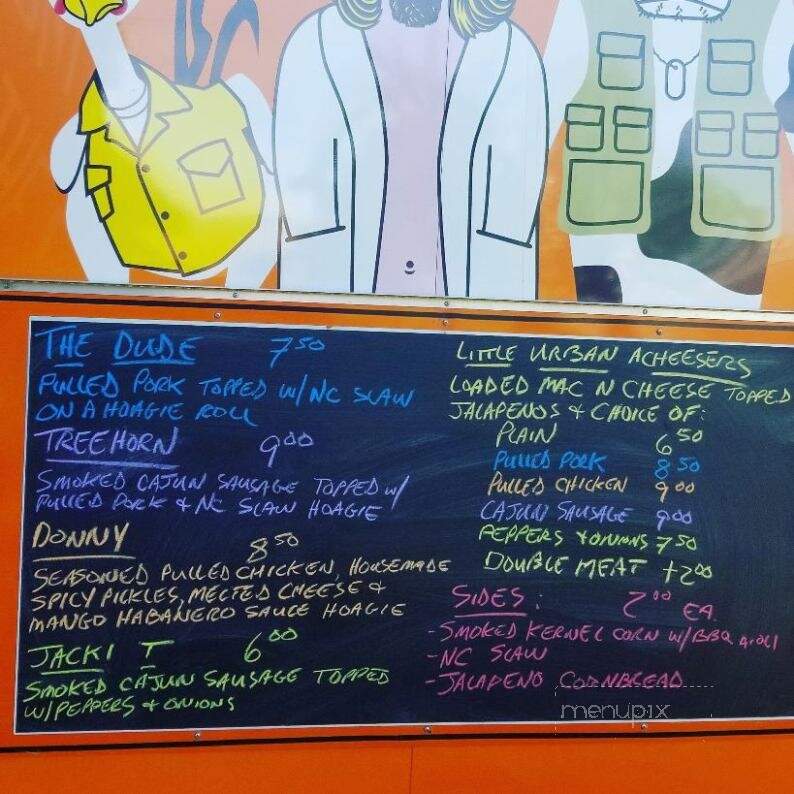 THE DUDE 7.50
PULLED PORK TOPPED W/NC SLAW
ON A HOAGIE ROLL
TREEHORN 9.00
SMOKED CAJUN SAUSAGE TOPPED W/
PULLED PORK & NC SLAW HOAGIE
DONNY 8.50
SEASONED PULLED CHICKEN, HOUSEMADE
SPICY PICKLES, MELTED CHEESE &
MANGO HABANERO SAUCE HOAGIE
JACKI T 6.00
SMOKED CAJUN SAUSAGE TOPPED
W/PEPPERS & ONIONS
LITTLE URBAN ACHEESERS
LOADED MAC N CHEESE TOPPED
JALAPENOS & CHOICE OF:
PLAIN 6.50
PULLED PORK 8.50
PULLED CHICKEN 9.00
CAJUN SAUSAGE 9.00
PEPPERS & ONIONS 7.50
DOUBLE MEAT +2.00
SIDES: 2.00 EA.
-SMOKED KERNEL CORN W/BBQ AIOLI
-NC SLAW
-JALAPENO CORNBREAD
menupix